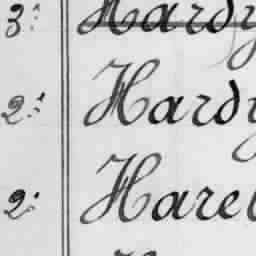 3. Hardy
2. Hardy
2. Harel